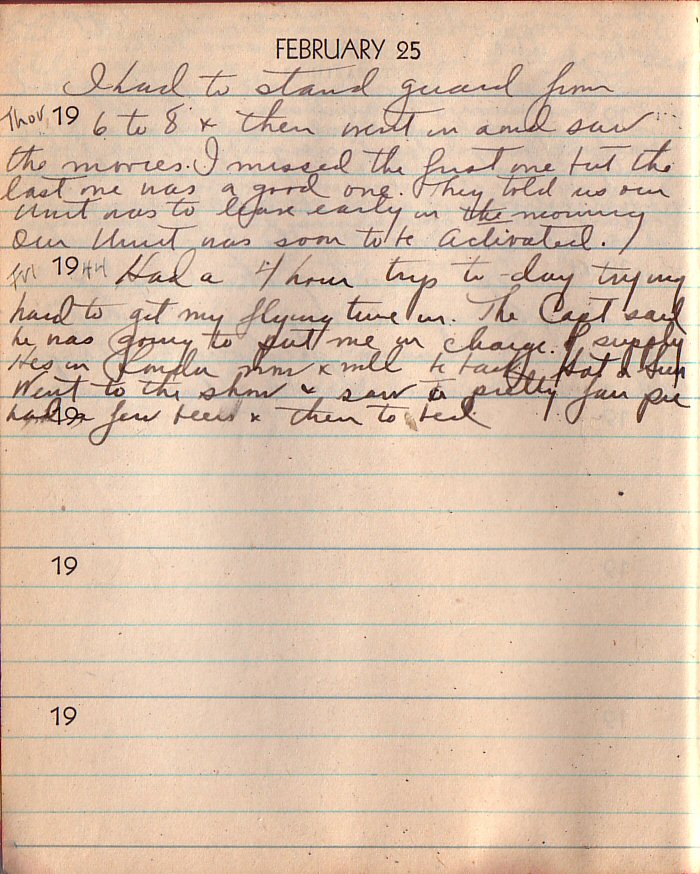 FEBRUARY 25
I had to stand guard from
Thur. 19 6 to 8 & then went in and saw
the movies. I missed the first one but the
last one was a good one. They told us our
Unit was to leave early in the morning
Our Unit was soon to be activated.
Fri 1944 Had a 4 hour trip to-day trying
hard to get my flying time in. The Capt said
he was going to put me in charge of supply
Hes in London now & will be back
Went to the show & saw a pretty fair pic
had a few beers & then to bed
19
19
19